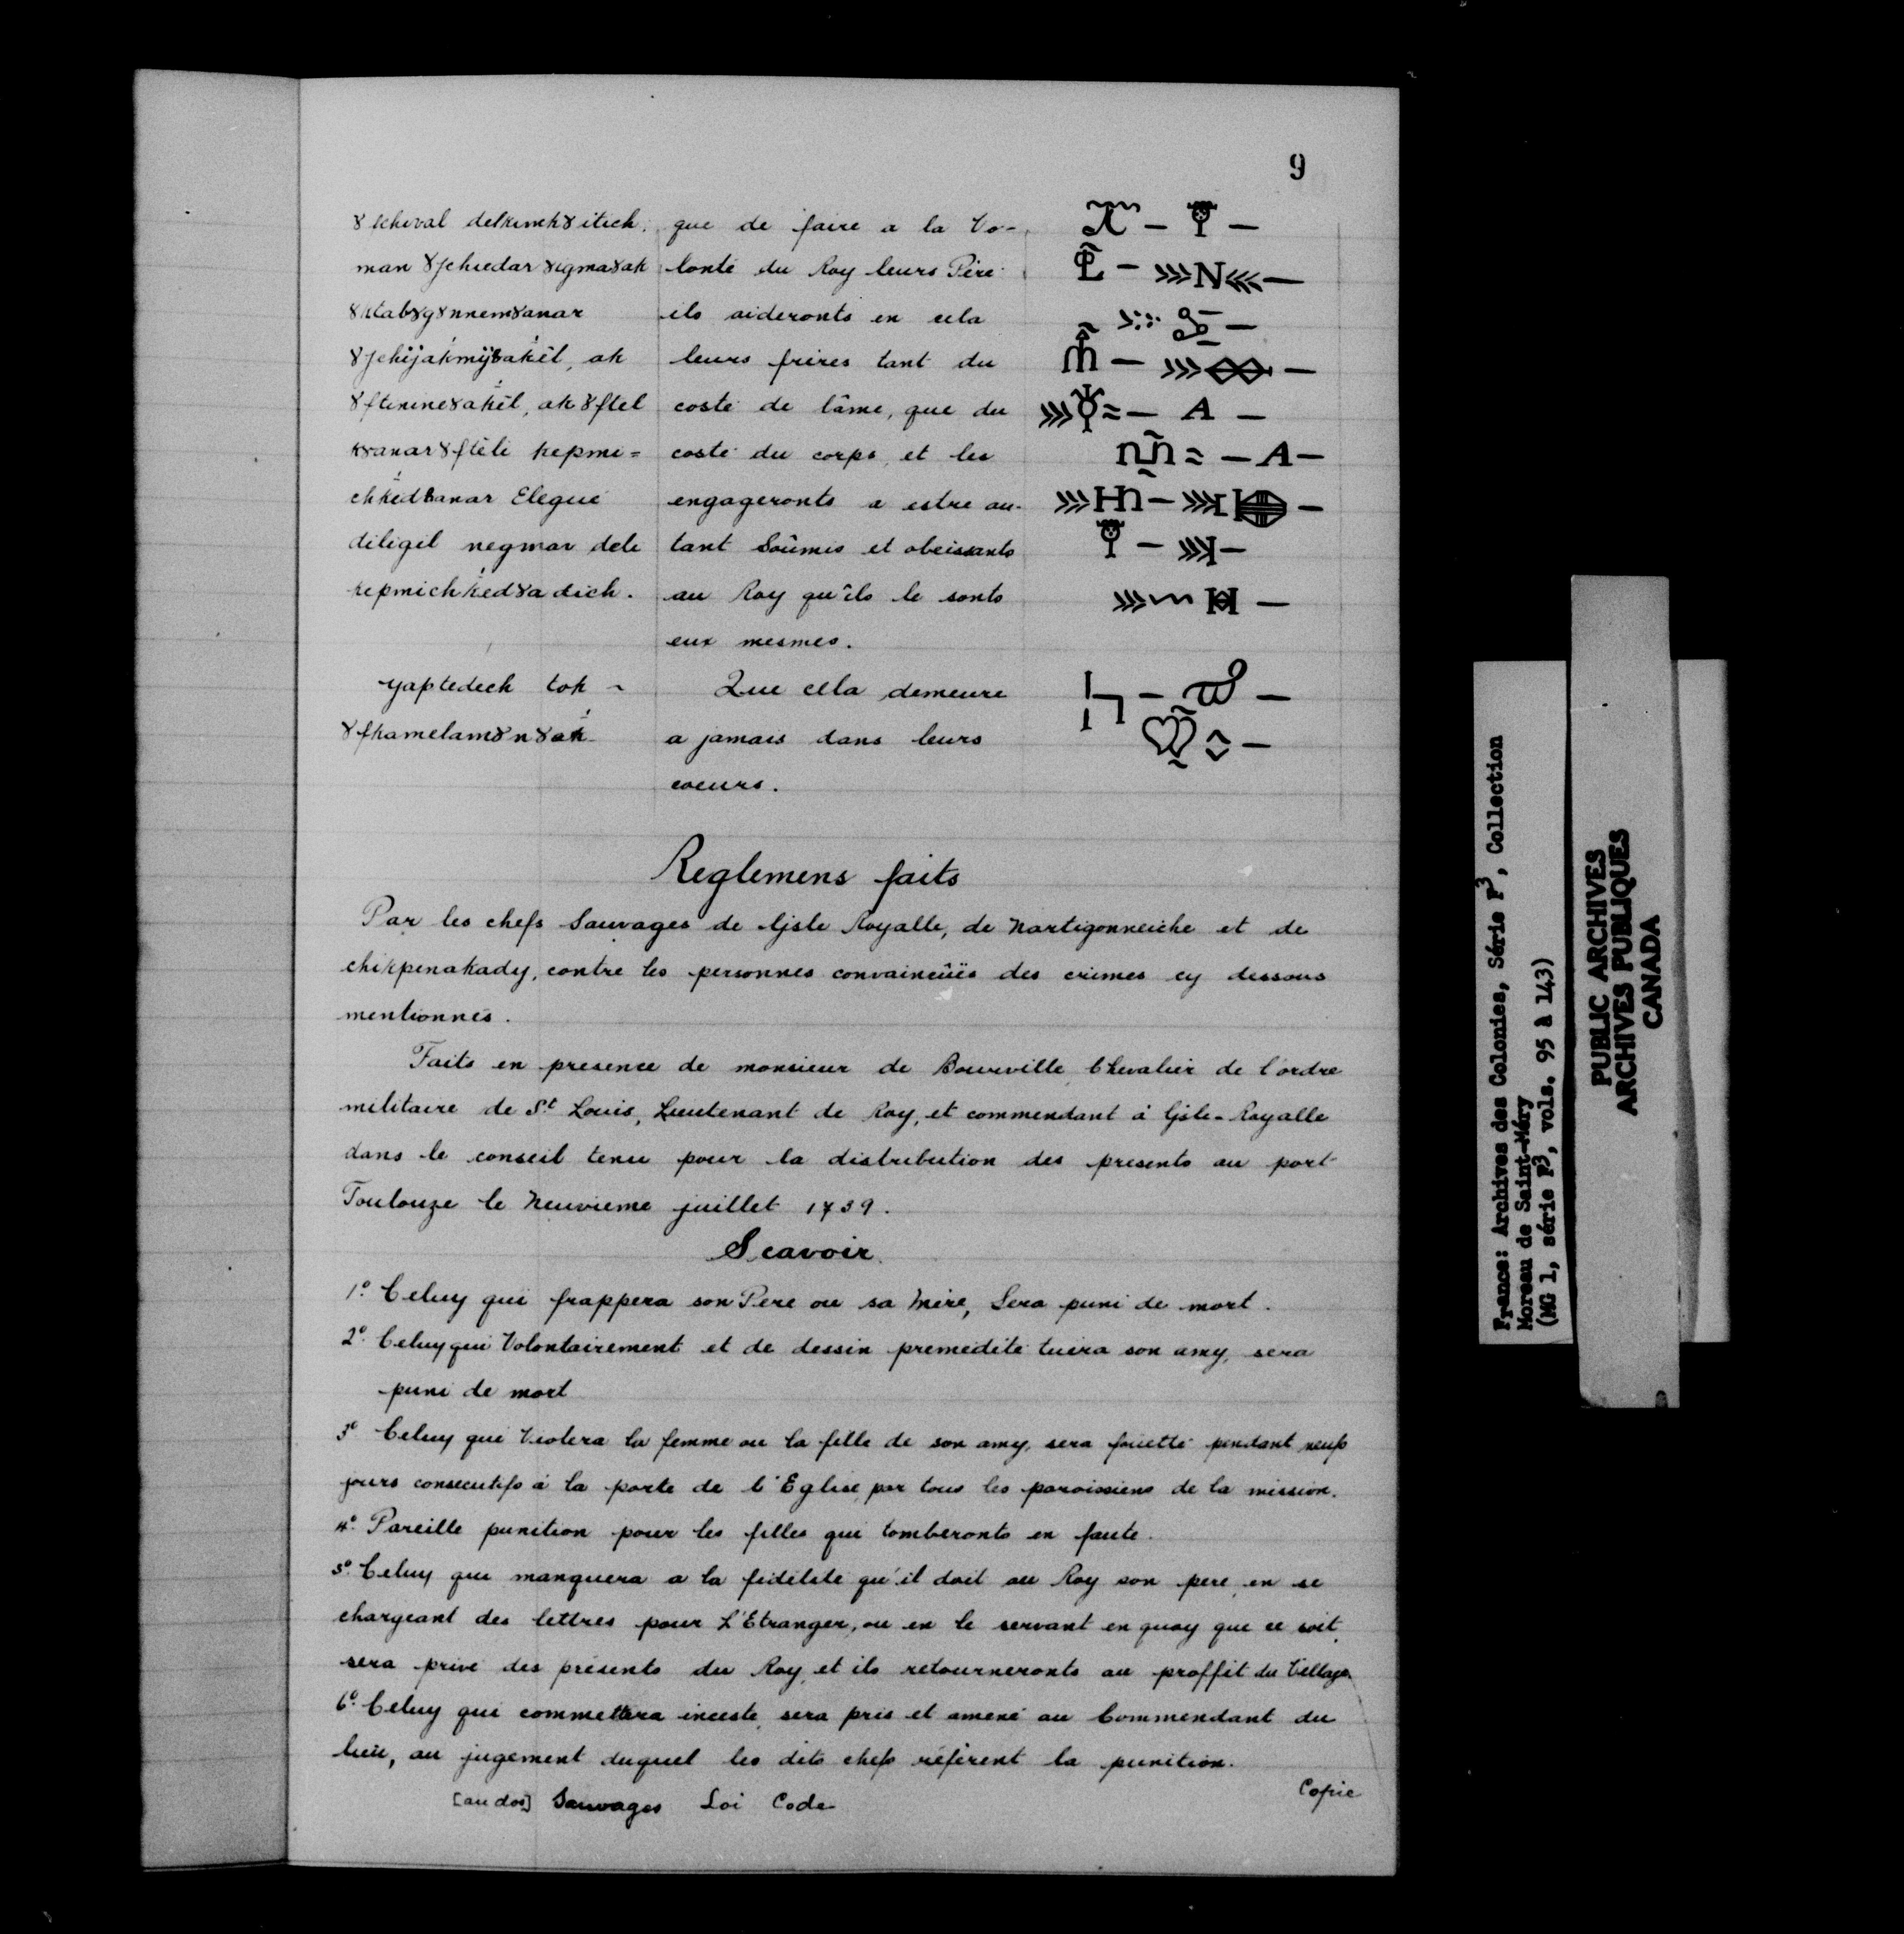 9
ȣʃcheval delkimkȣitich. que de faire a la Vo-
man ȣʃchiedar ȣigmaȣak lonté du Roy leurs Père
ȣktabȣgȣnnemȣanar ils aideronts en cela
ȣʃchijakmijȣakêl, ak leurs frères tant du
ȣʃtinineȣakêl, ak ȣʃtel coste de lâme, que du
kȣanar ȣʃtêli kepmi= coste du corps, et les
chkêdȣanar Elegué engageronts a estre au-
diligil negmar deli tant Soûmis et obeissants
kepmichkedȣadich. au Roy qu'ils le sonts
eux mesmes.
yaptedech tok ~ Que cela demeure
ȣʃkamelamȣnȣak a jamais dans leurs
coeurs.
Reglemens faits
Par les chefs Sauvages de Ljsle Royalle, de Nartigonneiche et de
chikpenakady, contre les personnes convaincûës des crimes cy dessous
mentionnés.
Faits en presence de monsieur de Bourville Chevalier de l'ordre
militaire de St Louis, Lieutenant de Roy, et commendant à Ljsle-Royalle
dans le conseil tenu pour la distribution des presents au port
Toulouze le Neuvieme juillet 1739.
Scavoir
1º. Celuy qui frappera son Pere ou sa Mère, Sera puni de mort.
2º. Celuy qui Volontairement et de dessin premedité tuera son amy, sera
puni de mort
3º Celuy qui Violera la femme ou la fille de son amy, sera fouetté pendant neufs
jours consecutifs à la porte de l'Eglise par tous les paroissiens de la mission.
4º. Pareille punition pour les filles qui tomberonts en faute.
5º. Celuy qui manquera a la fidélité qu'il doit au Roy son pere, en se
chargeant des lettres pour L'Etranger, ou en le servant en quoy que ce soit,
sera privé des présents du Roy, et ils retourneronts au proffit du Village
6º. Celuy qui commettera inceste, sera pris et amené au Commendant du
lieu, au jugement duquel les dits chefs réfèrent la punition.
Copie
[au dos] Sauvages Loi Code
France: Archives des Colonies, Série F3, Collection
Moreau de Saint-Méry
(MG 1, série F3, vols. 95 à 143)
PUBLIC ARCHIVES
ARCHIVES PUBLIQUES
CANADA